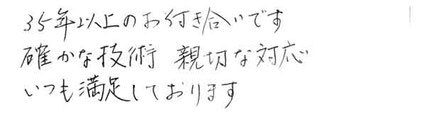 35年以上のお付き合いです
確かな技術 親切な対応
いつも満足しております